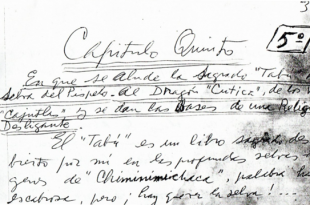 3
Capítulo Quinto
5º
En que se alude la sagrado "Tabú"
selva del Pispelo del Dragón "Cutica", de los
"Capulli" y se dan las Bases de una Relig
Desligante.
El "Tabú" es un libro sagrado des
bierto por mí en las profundas selvas
genes de "Chiminimichaca", palabra
escabrosa, pero ¡hay que ver la selva!...